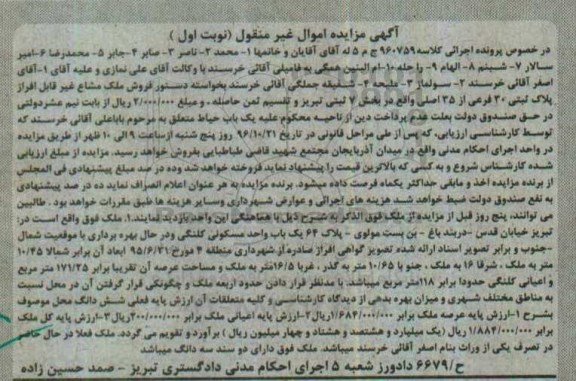 آگهی مزایده اموال غیر منقول (نوبت اول)
در خصوص پرونده اجرائی کلاسه ۹۶۰۷۵۹ ج م ۵ له آقای آقایان و خانمها ۱- محمد ۲- ناصر ۳- صابر ۴- جابر ۵- محمدرضا ۶- امیر
سالار ۷- شبنم ۸- الهام ۹- راحله ۱۰- ام البنین همگی به فامیلی آقائی خرسند با وکالت آقای علی نمازی و علیه آقای ۱- آقای
اصغر آقائی خرسند ۲- سولماز ۳- ملیحه ۴- شفیقه جملگی آقائی خرسند بخواسته دستور فروش ملک مشاع غیر قابل افراز
پلاک ثبتی ۳۰ فرعی از ۳۵ اصلی واقع در بخش ۷ ثبتی تبریز و تقسیم ثمن حاصله ، و مبلغ ۲/۰۰۰/۰۰۰ ریال از بابت نیم عشر دولتی
در حق صندوق دولت بعلت عدم پرداخت دین از ناحیه محکوم علیه یک باب حیاط متعلق به مرحوم باباعلی آقائی خرسند که
توسط کارشناسی ارزیابی، که پس از طی مراحل قانونی در تاریخ ۹۶/۱۰/۲۱ روز پنج شنبه ازساعت ۹ الی ۱۰ ظهر از طریق مزایده
در واحد اجرای احکام مدنی واقع در میدان آذربایجان مجتمع شهید قاضی طباطبایی بفروش خواهد رسید. مزایده از مبلغ ارزیابی
شده کارشناس شروع و به کسی که بالاترین قیمت را پیشنهاد نماید فروخته خواهد شد وده در صد مبلغ پیشنهادی فی المجلس
از برنده مزایده اخذ و مابقی حداکثر یکماه فرصت داده میشود. برنده مزایده به هر عنوان اعلام انصراف نماید ده در صد پیشنهادی
به نفع صندوق دولت ضبط خواهد شد هزینه های اجرائی و عوارض شهرداری وسایر هزینه ها طبق مقررات خواهد بود . طالبین
می توانند، پنج روز قبل از مزایده از ملک فوق الذکر به شرح ذیل با هماهنگی این واحد بازدید نمایند.۱. ملک فوق واقع است در:
تبریز خیابان قدس -دربند باغ - بن بست مولوی - پلاک ۶۴ یک باب واحد مسکونی کلنگی ودر حال بهره برداری با موقعیت شمال
-جنوب و برابر تصویر اسناد ارائه شده تصویر گواهی افراز صادره از شهرداری منطقه ۴ مورخ ۹۵/۶/۳۱ ابعاد آن برابر شمالا ۱۰/۴۵
متر به ملک ، شرقا ۱۶ به ملک ، جنوبا ۱۰/۶۵ متر به گذر ، غربا ۱۶/۵متر به ملک و مساحت عرصه آن تقریبا برابر ۱۷۱/۲۵ متر مربع
و اعیانی کلنگی حدودا برابر ۱۱۸متر مربع میباشد. با مدنظر قرار دادن حدود اربعه ملک و چگونگی قرار گرفتن آن در محل نسبت
به مناطق مختلف شهری و میزان بهره بدهی از دیدگاه کارشناسی و کلیه متعلقات آن ارزش پایه فعلی شش دانگ محل موصوف
بشرح ۱-ارزش پایه عرصه ملک برابر ۱/۶۸۴/۰۰۰/۰۰۰ریال۲-ارزش پایه اعیانی ملک برابر ۲۰۰/۰۰۰/۰۰۰ریال۳-ارزش پایه کل ملک
برابر ۱/۸۸۴/۰۰۰/۰۰۰ ریال (یک میلیارد و هشتصد و هشتاد و چهار میلیون ریال ) برآورد و تقویم می گردد. ملک فعلا در حال حاضر
در تصرف یکی از وراث بنام اصغر آقائی خرسند میباشد. ملک فوق دارای دو سند سه دانگ میباشد
ح/۶۶۷۹ دادورز شعبه ۵ اجرای احکام مدنی دادگستری تبریز - صمد حسین زاده